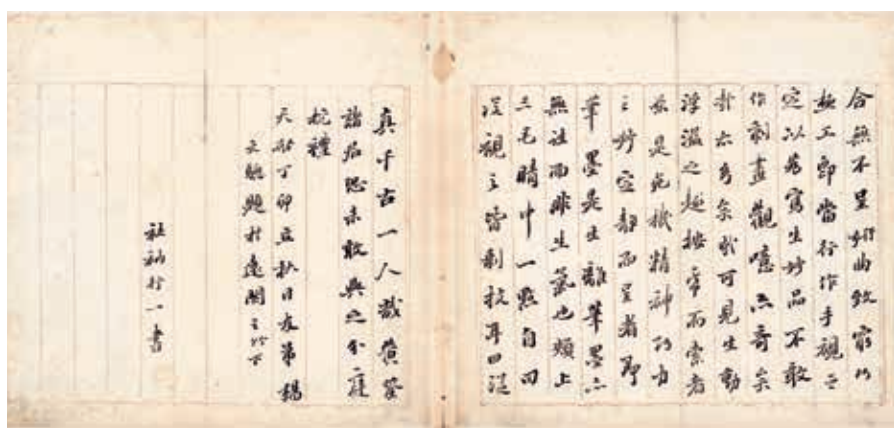 合無不呈妍曲致窮巧
極工即當行作手視之
定以為寫生妙品不敢
作刺畫觀噫亦奇矣
哉亦秀矣我可見生動
浮溢之趣按帝而索者
亦是危機精神巧力
之妙寂靜而呈者即
筆墨是生離筆墨亦
無往而非生氣也頰上
三毛睛中一點自回
後視之皆剩技耳曰從
真千古一人哉黃筌
諸君恐未敢與之分庭
抗禮
天啟丁卯立秋日友弟楊
文驄題於遠閣之竹下
社衲行一書